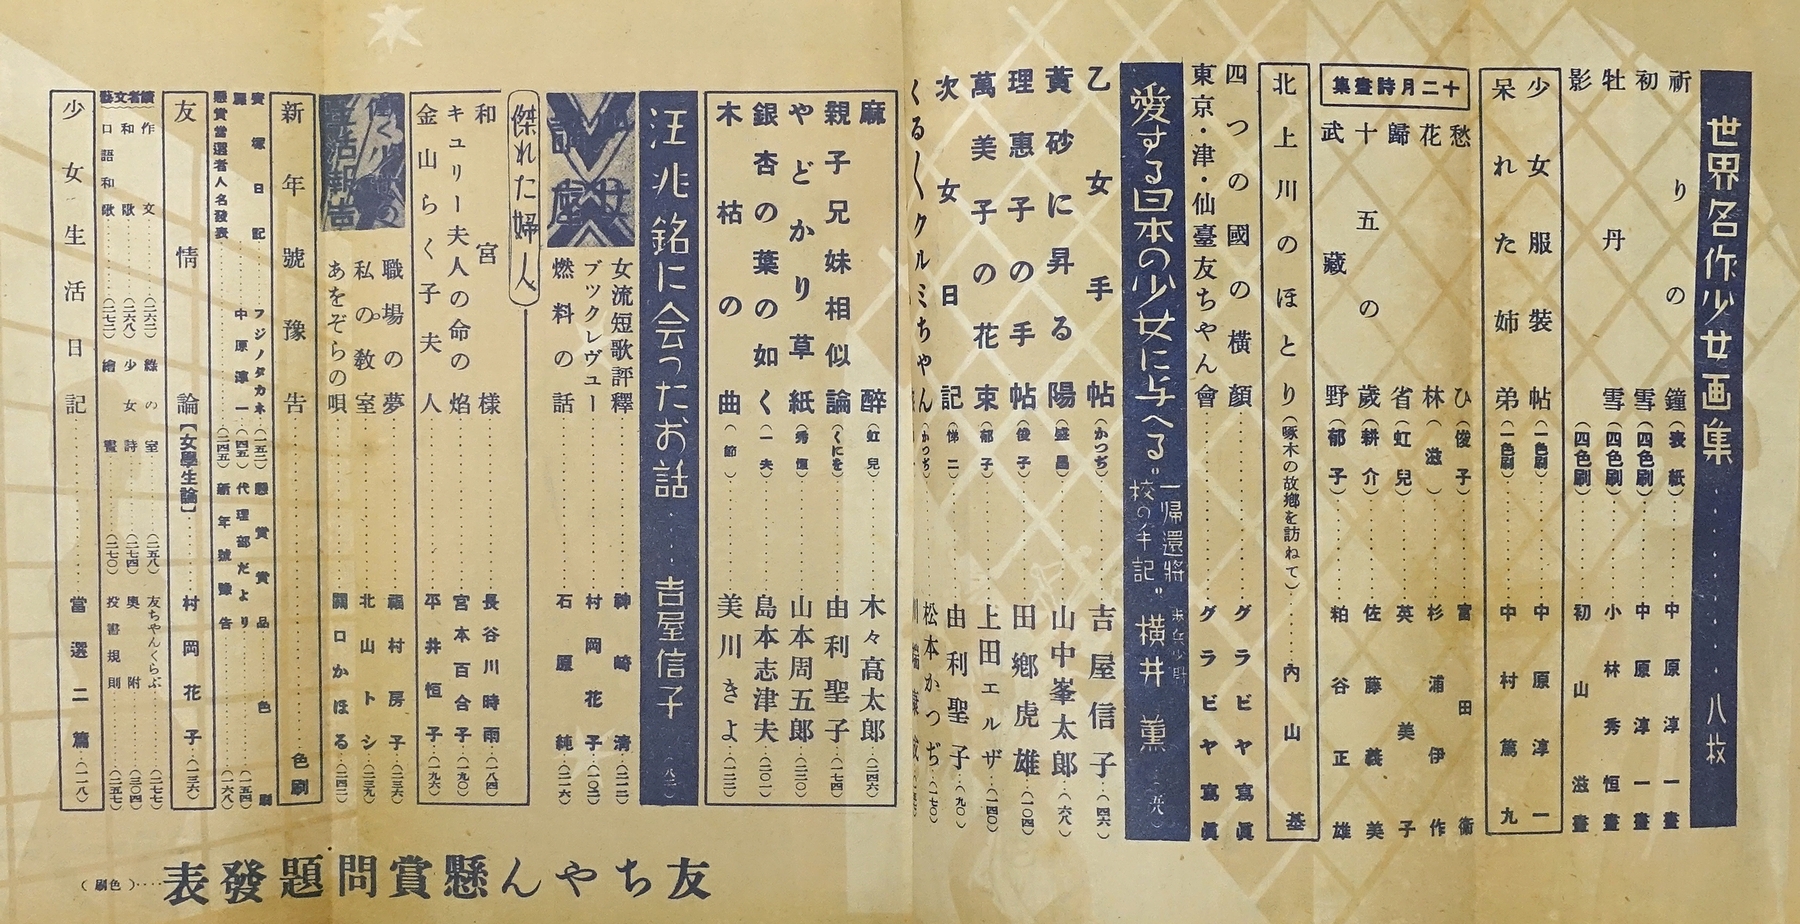 世界名作少女画集……八枚
祈りの鐘(表紙)……中原淳一畫
初雪(四色刷)……中原淳一畫
牡丹雪(四色刷)……小林秀恒畫
影(四色刷)……初山滋畫
少女服裝帖(一色刷)……中原淳一
呆れた姉弟(一色刷)……中村篤九
十二月詩畫集
愁ひ(俊子)……富田衞
花林(滋)……杉浦伊作
歸省(虹兒)……英美子
十五の歲(耕介)……佐藤義美
武藏野(郁子)……粕谷正雄
北上川のほとり(啄木の故鄕を訪ねて)……内山基
四つの國の橫顏……グラビヤ寫眞
東京・津・仙臺友ちやん會……グラビヤ寫眞
愛する日本の少女に与へる。一帰還將校の手記。歩兵少尉 横井薫…(五八)
乙女手帖(かつぢ)……吉屋信子…(四六)
黃砂に昇る陽(盛昌)……山中峯太郎…(六八)
理惠子の手帖(俊子)……田鄕虎雄…(一〇四)
萬美子の花束(郁子)……上田エルザ…(一四〇)
次女日記(悌二)……由利聖子…(九〇)
くる〳〵クルミちやん(かつぢ)……松本かつぢ…(一七〇)
麻醉(虹兒)……木々高太郎…(二四六)
親子兄妹相似論(くにを)……由利聖子…(一七四)
やどかり草紙(秀恒)……山本周五郎…(二三〇)
銀杏の葉の如く(一夫)……島本志津夫…(二〇一)
木枯の曲(節)……美川きよ…(一二二)
汪兆銘に会つたお話……吉屋信子(八二)
女流短歌評釋……神崎清…(二一二)
ブックレヴュー……村岡花子…(一〇二)
燃料の話……石原純…(二一六)
傑れた婦人
和宮樣……長谷川時雨…(一八四)
キュリー夫人の命の焰……宮本百合子…(一九〇)
金山らく子夫人……平井恒子…(一九六)
働く少女の生活報告
職場の夢……福村房子…(二三六)
私の敎室……北山トシ…(二三九)
あをぞらの唄……關口かほる…(二四二)
新年號豫告……色刷
寶塚日記……フジノタカネ…(一五二)
懸賞賞品……色刷
麗……中原淳一…(四五)
代理部だより……(一五四)
懸賞當選者人名發表……(二四五)
新年號豫告……(一六八)
友情論【女學生論】……村岡花子…(一三六)
讀者文藝
作文……(二六二)
綠の室……(二五八)
友ちやんくらぶ……(二七七)
和歌……(二六八)
少女詩……(二七四)
奧附……(三〇四)
口語和歌……(二七二)
繪畫……(二七〇)
投書規則……(二五七)
少女生活日記……當選二篇…(一一八)
友ちやん懸賞問題發表……(色刷)